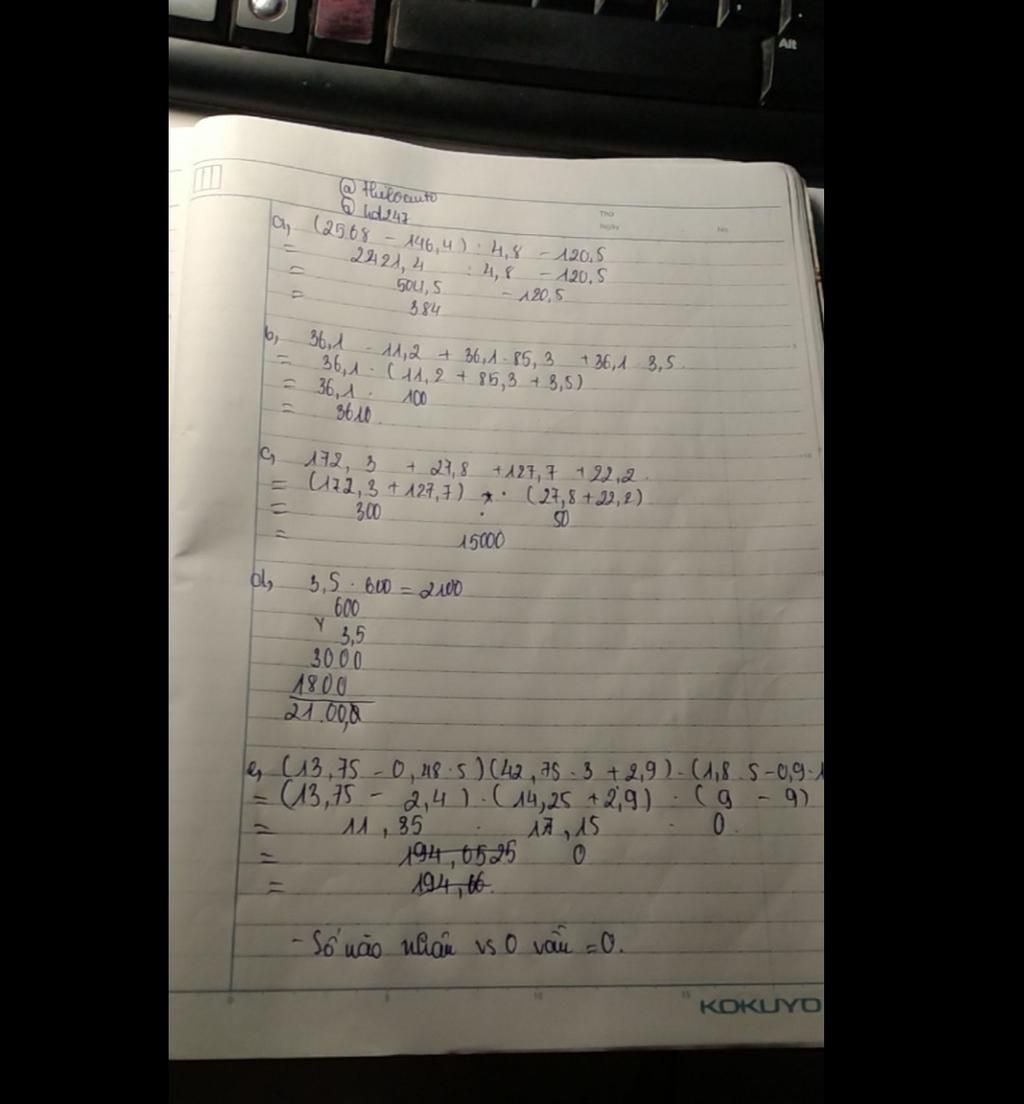 Alt
@ thuloauto
@ hd247
Thứ
Ngày
No.
a, (2568 - 146,4) : 4,8 - 120,5
= 2421,4 : 4,8 - 120,5
= 504,5 - 120,5
= 384
b, 36,1 · 11,2 + 36,1 · 85,3 + 36,1 3,5
= 36,1 · (11,2 + 85,3 + 3,5)
= 36,1 · 100
= 3610
c, 172,3 + 27,8 + 127,7 + 22,2
= (172,3 + 127,7) · (27,8 + 22,2)
= 300 · 50
= 15000
d, 3,5 · 600 = 2100
600
x 3,5
3000
1800
21.00,0
e, (13,75 - 0,48 · 5) (42,75 : 3 + 2,9) · (1,8 · 5 - 0,9 · 1
= (13,75 - 2,4) · (14,25 + 2,9) · (9 - 9)
= 11,35 · 17,15 · 0
= 194,6525 0
= 194,66.
- Số nào nhân vs 0 vẫn = 0.
0 5 10 15
KOKUYO